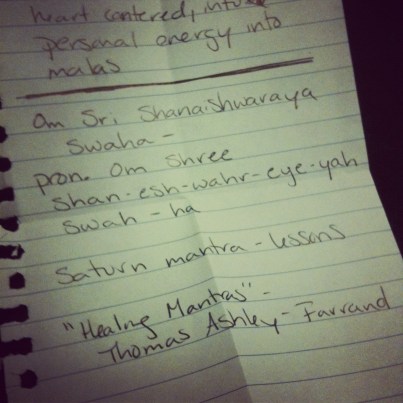 heart centered, into
personal energy into
malas
Om Sri Shanaishwaraya
Swaha -
pron. Om Shree
Shan-esh-wahr-eye-yah
Swah - ha
Saturn mantra - lessons
"Healing Mantras" -
Thomas Ashley-Farrand